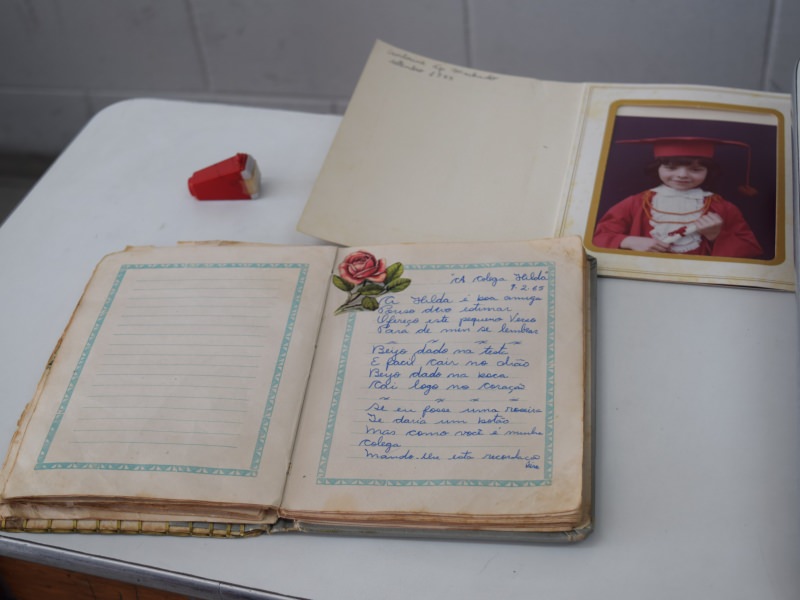 "A Colega Hilda"
9.2.65
A Hilda é boa amiga
Penso devo estimar
Ofereço este pequeno Verso
Para de mim se lembrar
Beijo dado na testa
E facil cair no chão
Beijo dado na boca
Cai logo no coração
Se eu fosse uma roseira
Te daria um botão
Mas como você é minha
Colega
Mando-lhe esta recordação